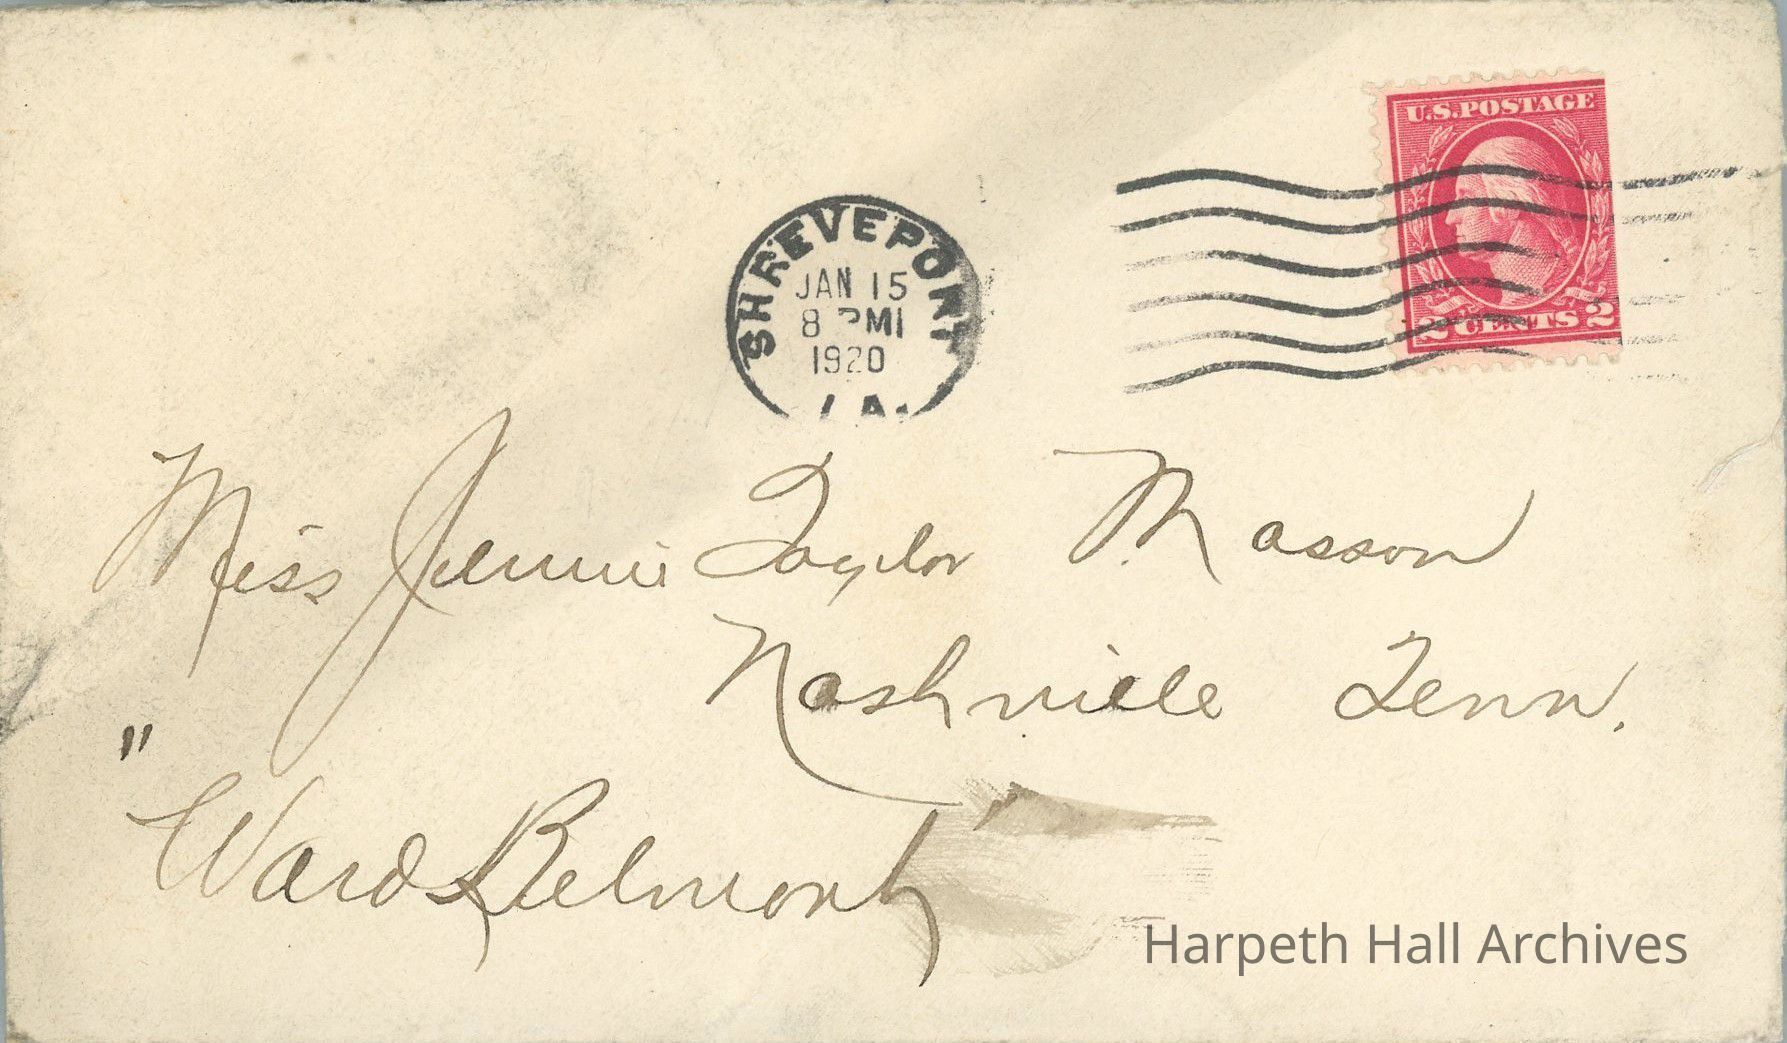 U.S.POSTAGE
2 CENTS 2
SHREVEPORT
JAN 15
8 PM
1920
LA.
Miss Jennie Taylor Masson
Nashville Tenn.
"
Ward Belmont
Harpeth Hall Archives